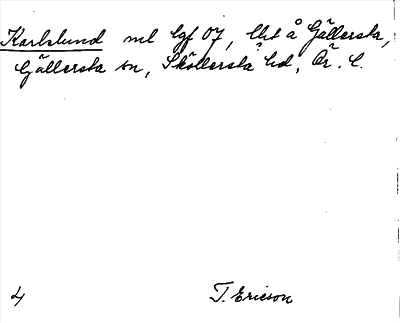 Karlslund ml lgf 07, lht å Gällersta,
Gällersta sn, Sköllersta hd, Ör. l.
4 T. Ericson